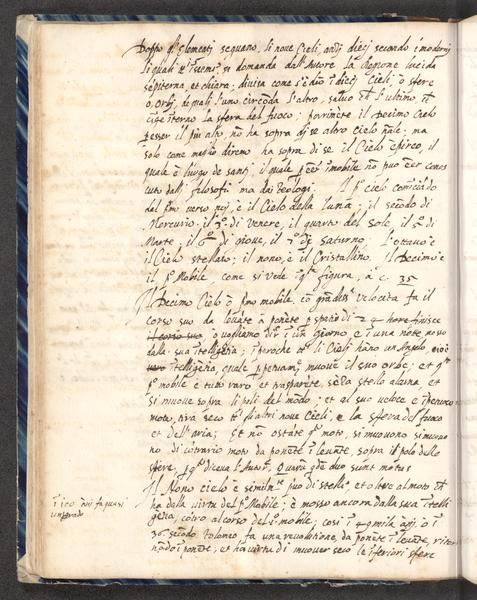 Doppo q.sti elementi seguano, li nove Cieli, anzi dieci secondo i moderni
li quali si domanda dall'Autore la Regione lucida
sepiterna, et chiara; divisa come s'è ditto i dieci Cieli, o sfere
o orbi, di quali l'uno circoda l'altro, salvo ch l'ultimo, ch
cige iterno la sfera del fuoco; parimete il decimo Cielo
p esser il piu alto, nō ha sopra di se altro cielo ; ma
solo come meglio diremo ha sopra di se il Cielo epireo, il
quale è luogo de santi, il quale p esser imobile nō puo esser conos
ciuto dalli filosofi ma dai Teologi. Il p.o cielo cominciādo
dal verso noi, è il Cielo della Luna; il secōdo di
Mercurio. il 3.o di Venere, il quarto del Sole, il 5.o di
Marte, il 6.o di Giove, il 7.o di Saturno, L'ottavo è
il Cielo stellato; il nono, è il Cristallino. Il Decimo è
il p.o Mobile, come si vede i q.sta figura, à c. 35
Il Decimo Cielo ò p.mo mobile, cō grādiss.a velocita fa il
corso suo da levāte a ponēte p spatio di 24 hore finisce
il corso suo, o vogliamo dir i un giorno e i una note mosso
dalla sua itelligētia; iperoche tt.i li Cieli hāno un Angelo, cioè
vero itelligētia, quale muove il suo orbe; et q.sto
p.o mobile è tutto raro et trasparēte, sēza stella alcuna, et
si muove sopra li poli del mōdo; et al suo veloce e
moto, tira seco tt.i gl'altri nove Cieli, e la sfera del fuoco
et dell'aria; Et nō ostāte q.sto moto, si muovono
nō di cōtrario moto da ponēte i levāte, sopra il polo delle
sfere, q.sto diceva quāvis duo sunt motus
Il Nono cielo è similm.te pvo di stelle et oltre al moto ch
ha dalla virtu del p.o Mobile; è mosso ancora dalla sua itelli
gētia, cōtro al corso del p.o mobile; così i 49 mila āni, ò i
36 secōdo Tolomeo, fa una revolutione, da ponēte i levāte,
nādo i ponēte; et ha virtu di muover seco le iferiori sfere
i 100 āni fa quasi
un grado